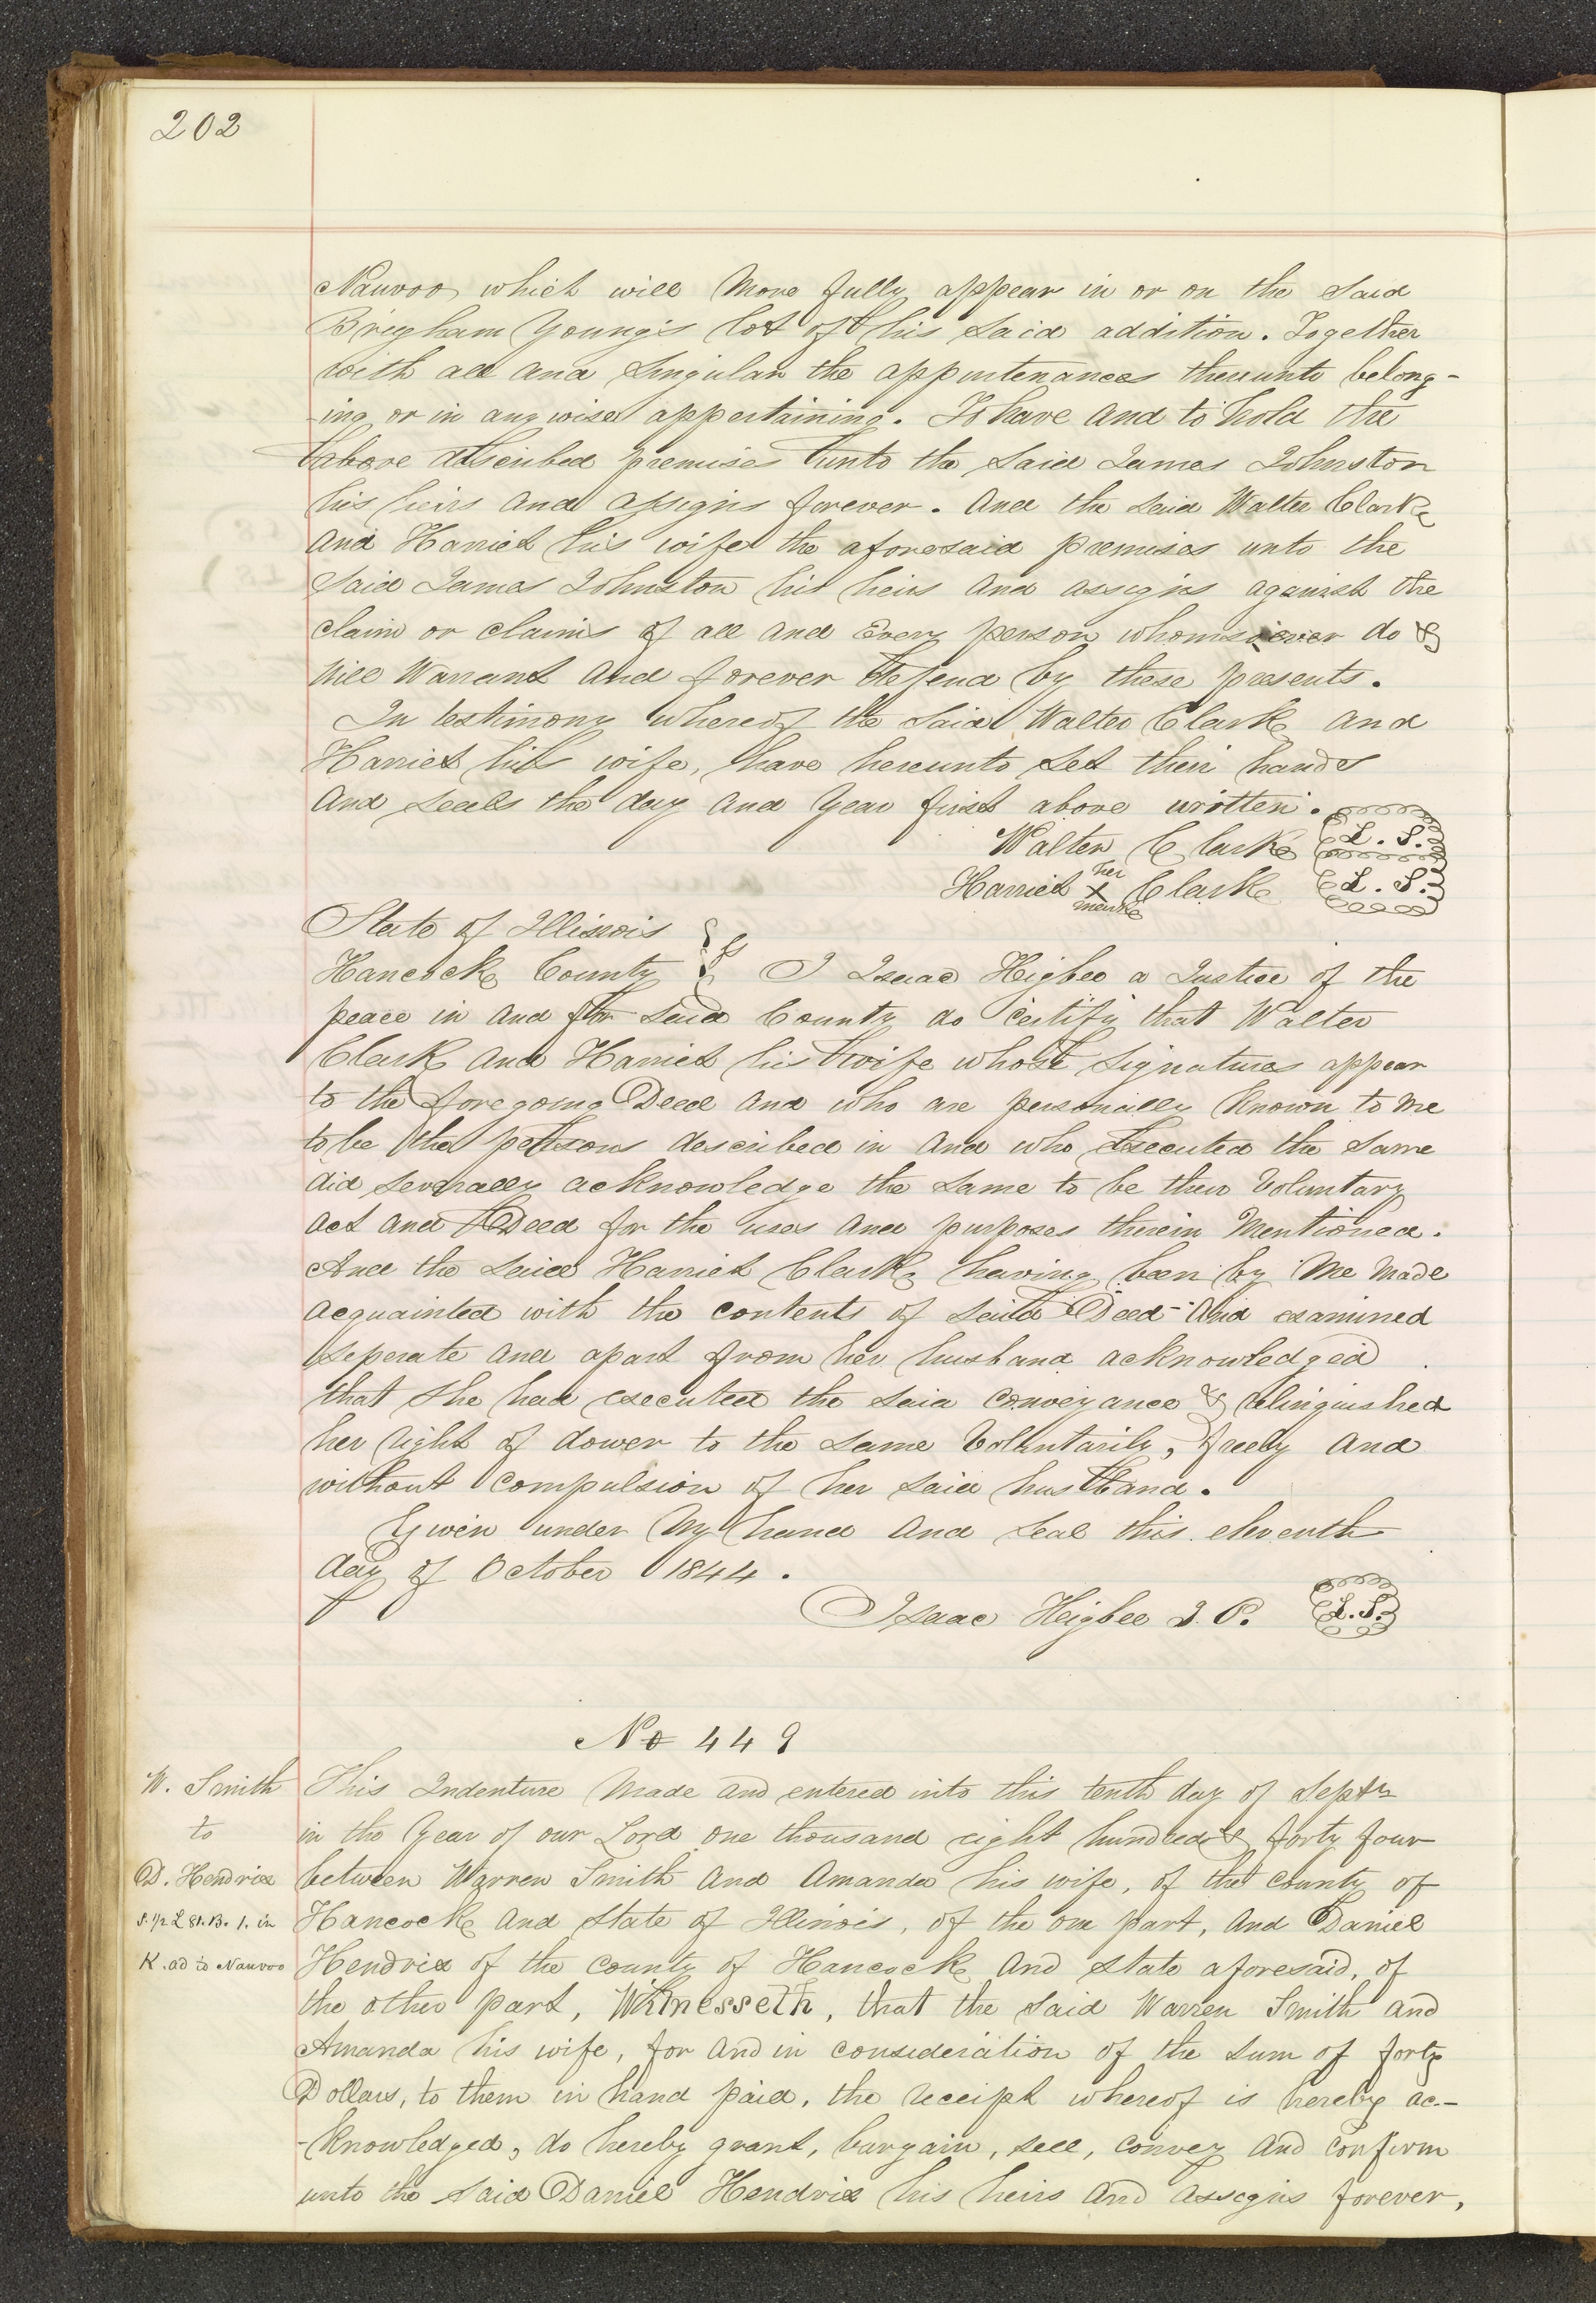 202
Nauvoo which will More fully appear in or on the Said
Brigham Young's lot of his Said addition. Together
with all and Singular the appurtenances thereunto belong-
-ing or in any wise appertaining. To have and to hold the
above described premises unto the Said James Johnston
his heirs and assigns forever. And the Said Walter Clark
And Harriet his wife the aforesaid premises unto the
Said James Johnston his heirs and assigns against the
claim or claims of all and Every person whomsoever do &
will Warrant and forever Defend by these presents.
In testimony whereof the Said Walter Clark and
Harriet his wife, have hereunto Set their hands
and Seals the day and Year first above written.
Walter Clark L. S.
Harriet her X marke Clark L. S.
State of Illinois
Hancock County } ss I Isaac Higbee a Justice of the
peace in and for Said County do Certify that Walter
Clark and Harriet his wife whose Signatures appear
to the foregoing Deed and who are personally Known to me
to be the persons described in and who Executed the Same
did Severally acknowledge the Same to be their Voluntary
act and Deed for the uses and purposes therein Mentioned.
And the Said Harriet Clark having been by Me Made
acquainted with the contents of Said Deed - And examined
Seperate and apart from her husband acknowledged
that She had executed the Said Conveyance & relinguished
her right of dower to the Same Voluntarily, freely and
without Compulsion of her Said husband.
Given under My hand and Seal this eleventh
day of October 1844.
Isaac Heigbee J. P. L. S.
No 449
W. Smith
to
D. Hendrix
S. 1/2 L 81. B. 1. in
K. ad to Nauvoo
This Indenture Made and entered into this tenth day of Septr
in the Year of our Lord one thousand eight hundred & forty four
between Warren Smith and Amanda his wife, of the County of
Hancock and State of Illinois, of the one part, and Daniel
Hendrix of the County of Hancock and State aforesaid, of
the other part, Witnesseth, that the Said Warren Smith and
Amanda his wife, for and in consideration of the Sum of forty
Dollars, to them in hand paid, the receipt whereof is hereby ac-
-knowledged, do hereby grant, bargain, sell, convey and confirm
unto the Said Daniel Hendrix his heirs and assigns forever,